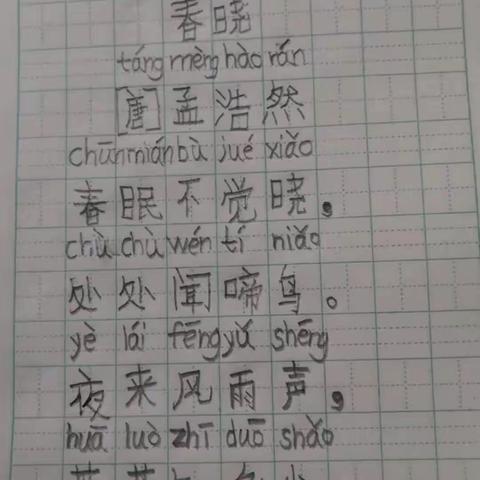 春晓
táng mèng hào rán
[唐]孟浩然
chūn mián bù jué xiǎo
春眠不觉晓，
chù chù wén tí niǎo
处处闻啼鸟。
yè lái fēng yǔ shēng
夜来风雨声，
huā luò zhī duō shǎo